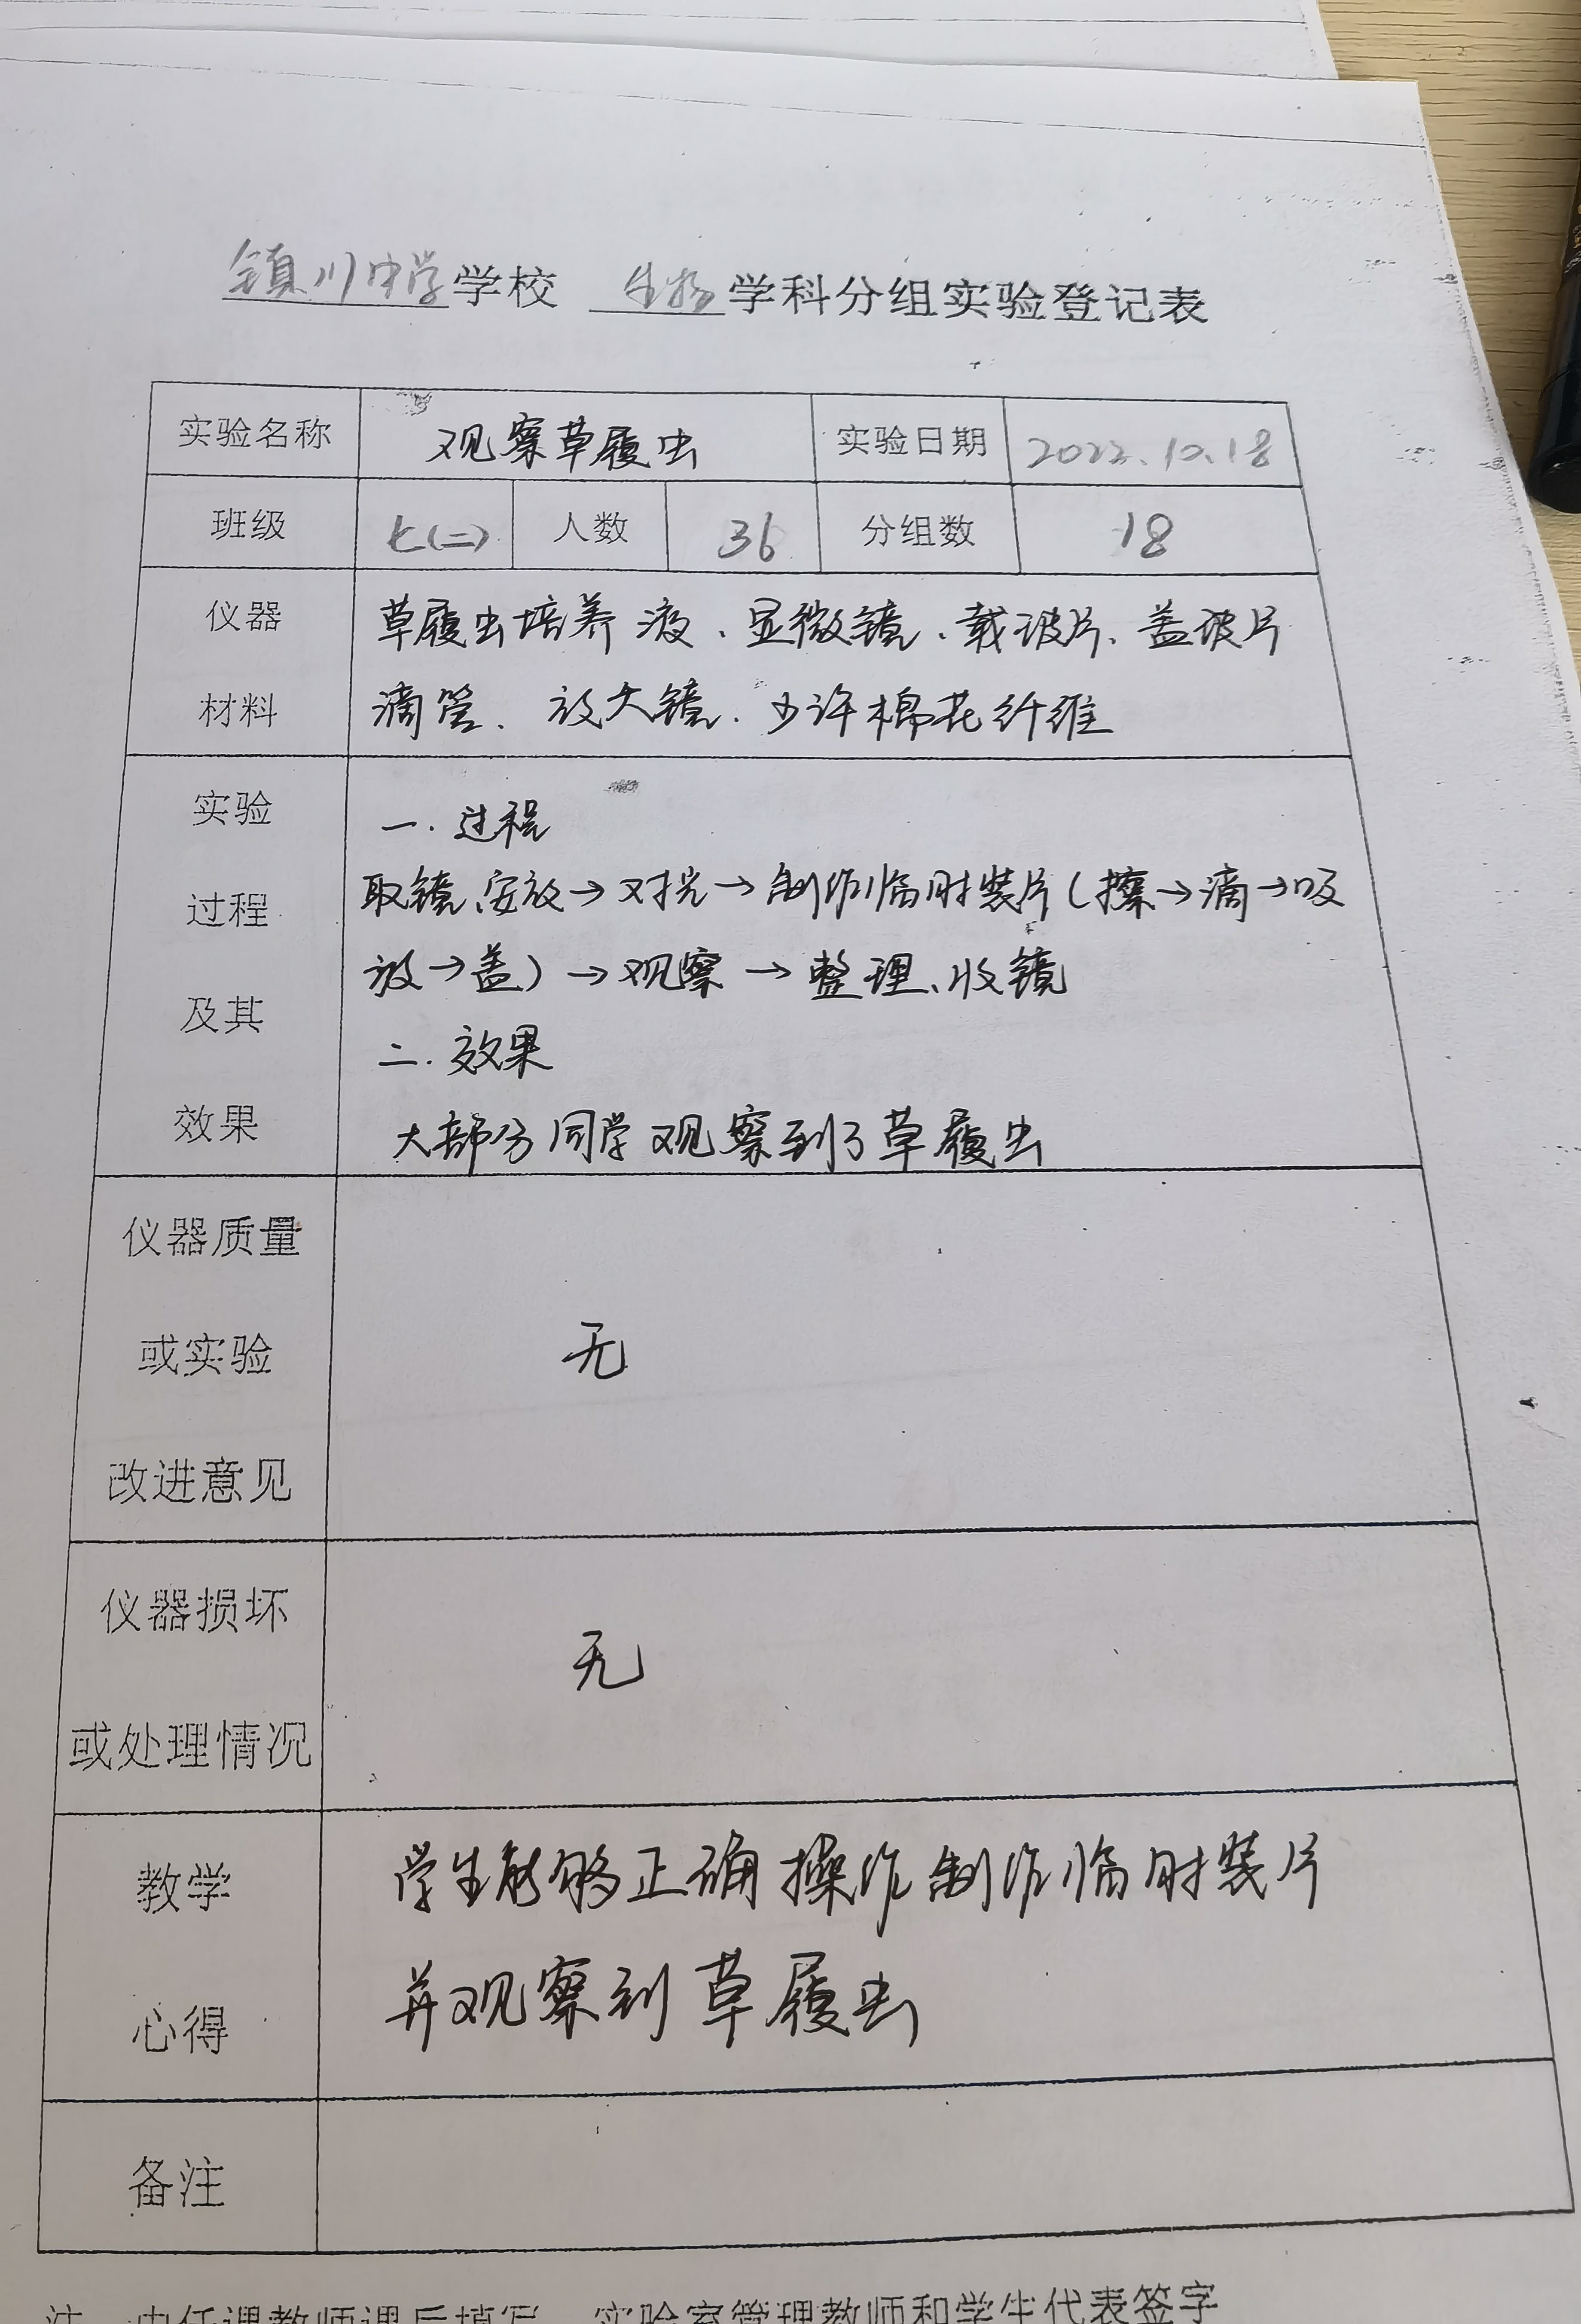 镇川中学学校 生物学科分组实验登记表
实验名称 观察草履虫 实验日期 2022.10.18
班级 七(二) 人数 36 分组数 18
仪器 草履虫培养液、显微镜、载玻片、盖玻片
材料 滴管、放大镜、少许棉花纤维
实验 一.过程
过程 取镜、安放→对光→制作临时装片(擦→滴→吸
放→盖)→观察→整理、收镜
及其 二.效果
效果 大部分同学观察到了草履虫
仪器质量
或实验 无
改进意见
仪器损坏 无
或处理情况
教学 学生能够正确操作制作临时装片
心得 并观察到草履虫
备注
注 由任课教师课后填写 实验室管理教师和学生代表签字